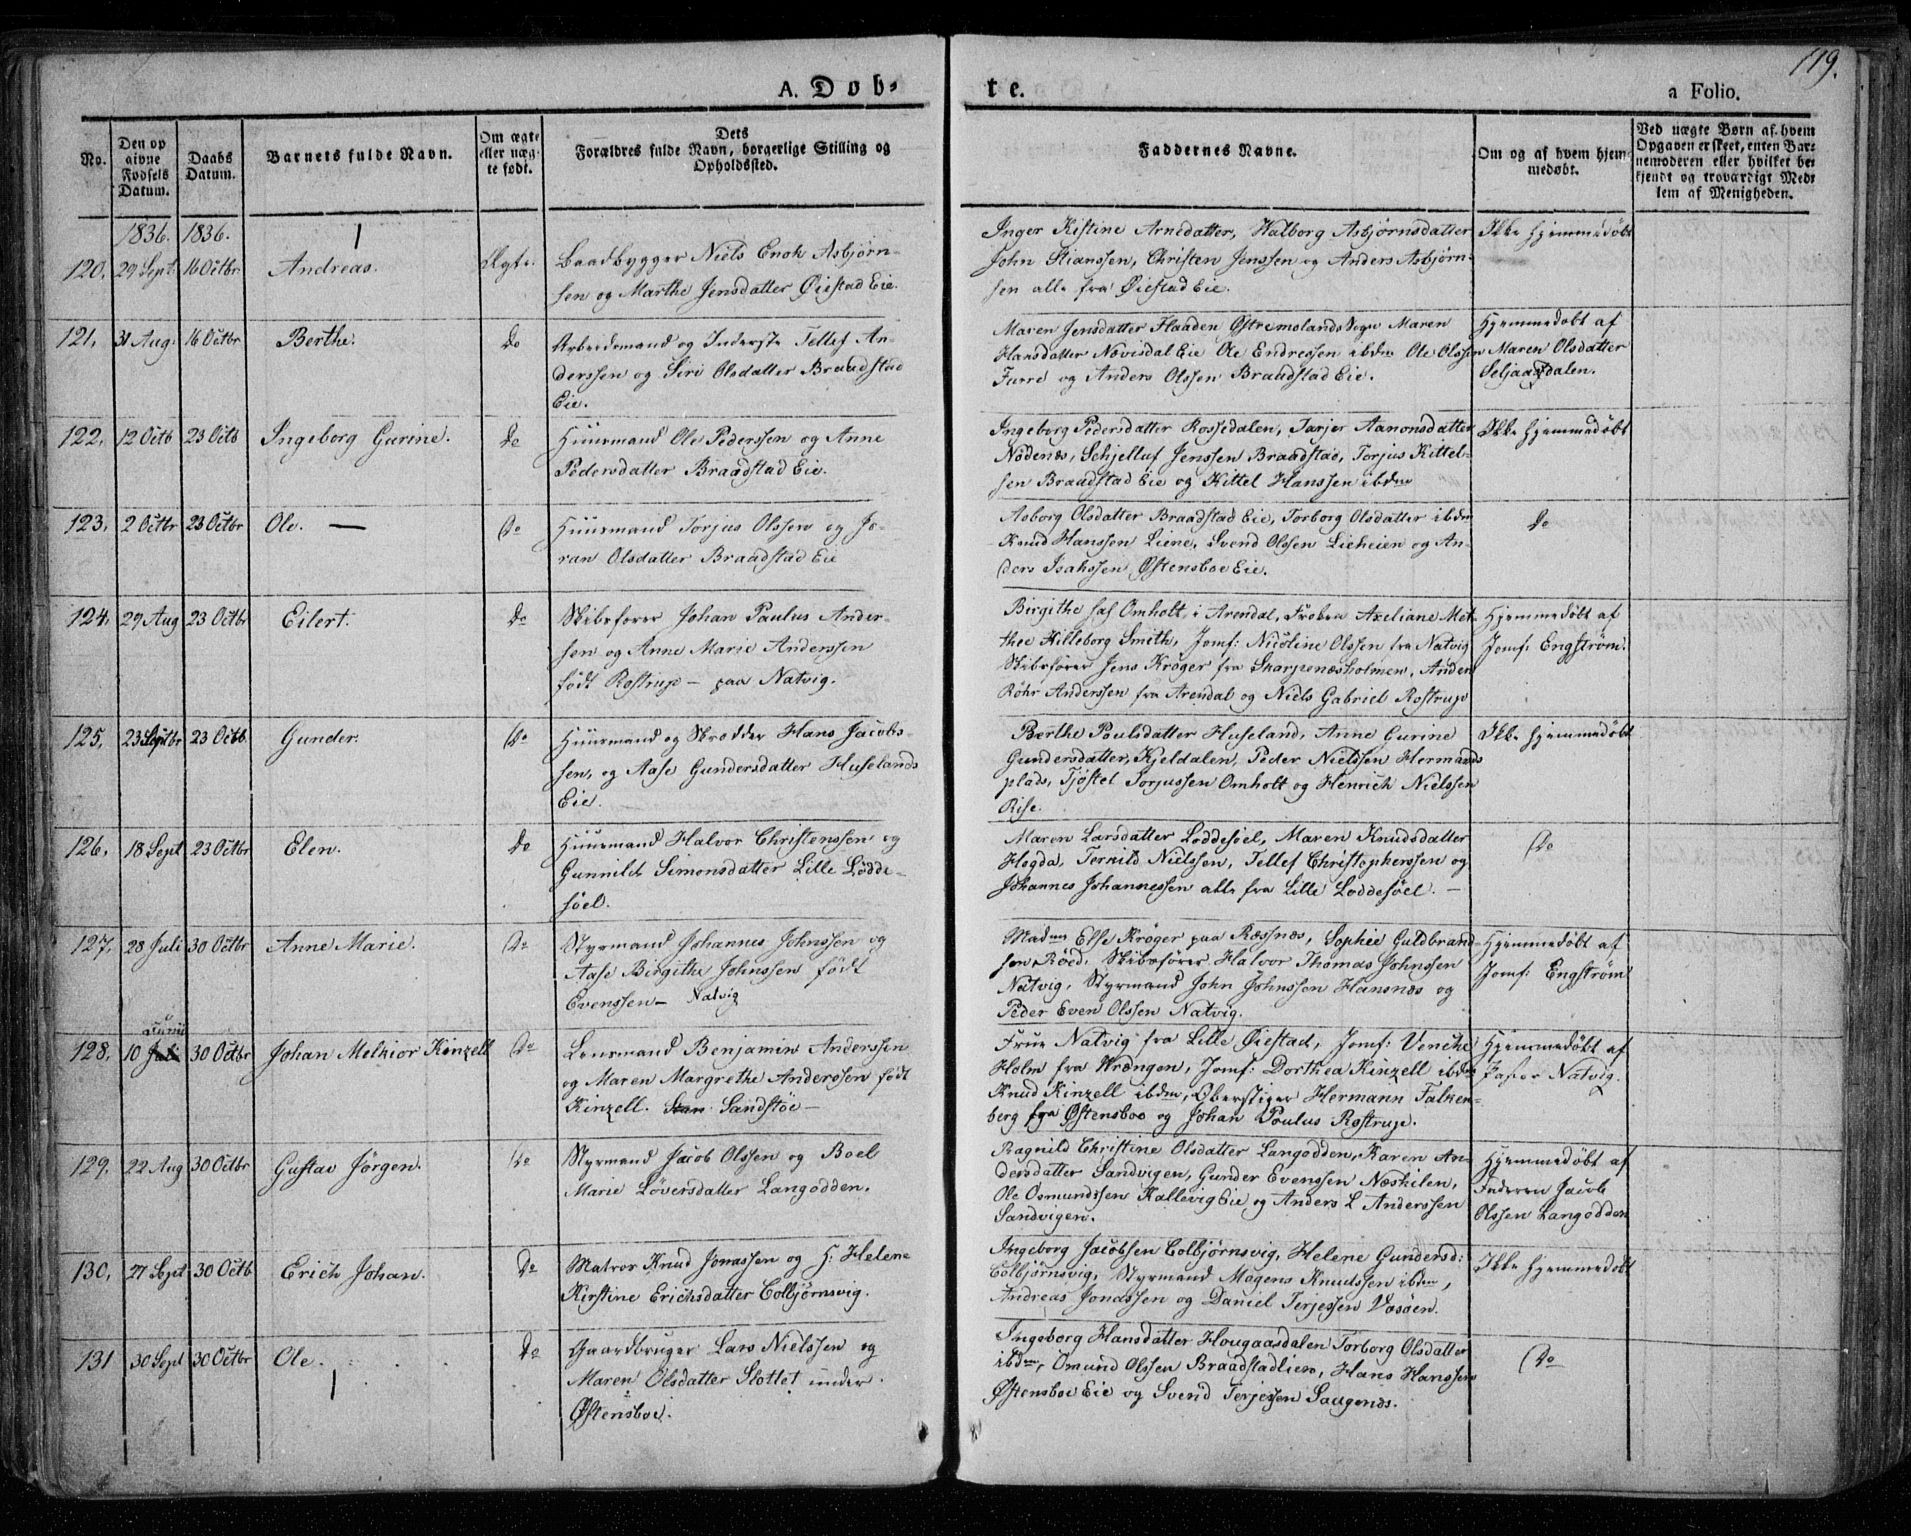 119.
A. Døb-
te.
a Folio.
No.
Den op
givne
Fødsels
Datum.
Daabs
Datum.
Barnets fulde Navn.
Om ægte
eller uæg-
te født.
Dets
Forældres fulde Navn, borgerlige Stilling og
Opholdssted.
Faddernes Navne.
Om og af hvem hjem-
medøbt.
Ved uægte Børn af hvem
Opgaven er skeet, enten Bar-
nemoderen eller hvilket be-
kjendt og troværdigt Med-
lem af Menigheden.
1836. 1836.
120. 29 Sept. 16 Octbr Andreas. Ægte.
Baadbygger Niels Enok Asbjørn-
sen og Marthe Jensdatter Øiestad Eie.
Inger Kistine Arnedatter, Halborg Asbjørnsdatter
John Stianssen, Christen Jenssen og Anders Asbjørn-
sen alle fra Øiestad Eie.
Ikke Hjemmedøbt
121. 31 Aug. 16 Octbr Berthe. Do
Arbeidsmand og Inderste Tellef An-
derssen og Siri Olsdatter Braadstad
Eie.
Maren Jensdatter Flaaden Østremolands Sogn Maren
Hansdatter Nævisdal Eie Ole Endressen ibdm Ole Olssen
Furre og Anders Olssen Braadstad Eie.
Hjemmedøbt af
Maren Olsdatter
Seljaasdalen.
122. 12 Octb 23 Octb Ingeborg Gurine. Do
Huusmand Ole Pederssen og Anne
Pedersdatter Braadstad Eie.
Ingeborg Pedersdatter Rossedalen, Tarjer Aanonsdatter
Nødenæs, Schjelluf Jenssen Braadstad, Torjus Kittel-
sen Braadstad Eie og Kittel Hanssen ibdm
Ikke Hjemmedøbt
123. 2 Octbr 23 Octbr Ole. — Do
Huusmand Torjus Olssen og Jo-
ran Olsdatter Braadstad Eie
Asborg Olsdatter Braadstad Eie, Torborg Olsdatter ibdm
Knud Hanssen Liene, Svend Olssen Lieheien og An-
ders Isakssen Østensboe Eie.
Do
124. 29 Aug 23 Octbr Eilert. Do
Skibsfører Johan Paulus Ander-
sen og Anne Marie Anderssen
født Rostrup — paa Natvig.
Birgithe sal Omholt, i Arendal, Frøken Axeliane Met-
thee Hilleborg Smith, Jomf: Nicoline Olssen fra Natvig
Skibsfører Jens Krøger fra Skarpenæsholmen, Anders
Röhr Anderssen fra Arendal og Niels Gabriel Rostrup
Hjemmedøbt af
Jomf: Engstrøm.
125. 23 Septbr 23 Octb. Gunder. Do
Huusmand og Skrædder Hans Jacobs-
sen, og Aase Gundersdatter Huselands
Eie.
Berthe Pedersdatter Huseland, Anne Gurine
Gundersdatter, Kjeldalen, Peder Nielssen Hermands
plads, Tjøstel Torjussen Omholt og Henrich Nielssen
Rise.
Ikke Hjemmedøbt
126. 18 Sept 23 Octbr Elen. Do
Huusmand Halvor Christenssen og
Gunnild Simonsdatter Lille Lødde-
søel.
Maren Larsdatter Loddesøel, Maren Knudsdatter
Hogda, Tornild Nielssen, Tellef Christopherssen og
Johannes Johannessen alle fra Lille Loddesøel. —
Do
127. 28 Juli 30 Octbr Anne Marie. Do
Styrmand Johannes Johnssen og
Aase Birgithe Johnssen født
Evenssen — Natvig
Madm Else Krøger paa Ræsnæs, Sophie Guldbrand-
sen Røed. Skibsfører Halvor Thomas Johnssen
Natvig, Styrmand John Johnssen Hansnæs og
Peder Even Olssen Natvig.
Hjemmedøbt af
Jomf: Engstrøm
Junii
128. 10 Juli 30 Octbr Johan Melkior Kinzell Do
Lensmand Benjamin Anderssen
og Maren Margrethe Anderssen født
Kinzell. San Sandstøe —
Frue Natvig fra Lille Øiestad, Jomf: Venche
Holm fra Wrængen, Jomf: Dorthea Kinzell ibdm
Knud Kinzell ibdm, Oberstiger Hermann Falken-
berg fra Østensboe og Johan Paulus Rostrup.
Hjemmedøbt af
Jasper Natvig.
129. 22 Aug 30 Octbr Gustav Jørgen. Do
Styrmand Jacob Olssen og Boel
Marie Løversdatter Langodden.
Ragnild Christine Olsdatter Langodden, Karen An-
dersdatter Sandvigen, Gunder Evenssen Næskilen,
Ole Osmundssen Kallevig Eie og Anders L Anderssen
Sandvigen.
Hjemmedøbt af
Faderen Jacob
Olssen Langodden
130. 27 Sept 30 Octb Erich Johan. Do
Matros Knud Jonassen og H: Helene
Kirstine Erichsdatter Colbjørnsvig.
Ingeborg Jacobsen Colbjørnsvig, Helene Gundersd:
Colbjørnsvig, Styrmand Mogens Knudssen ibdm,
Andreas Jonassen og Daniel Terjessen Vosøen.
Ikke Hjemmedøbt
131 30 Sept 30 Octbr Ole. Do
Gaardbruger Lars Nielssen og
Maren Olsdatter Slottet under
Østensboe.
Ingeborg Hansdatter Hougaasdalen Torborg Olsdatter
ibdm, Omund Olssen Braadstadlien, Hans Hanssen
Østensboe Eie og Svend Terjessen Saugenæs.
Do